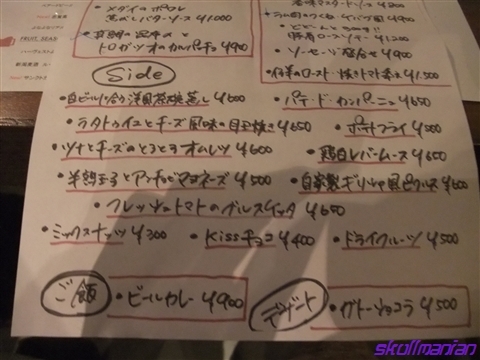 ・メダイのポワレ
焦がしバターソース ¥1,000
トロガツオのカルパッチョ ¥900
・ソーセージ盛合せ ¥900
・仔羊のロースト ¥1,500
FRUIT BEAR
Side
・白ビール ¥600
・パテ・ド・カンパーニュ ¥650
・ラタトゥイユとチーズ風味の目玉焼き ¥650
・ポテトフライ ¥500
・ツナとチーズのとろとろオムレツ ¥600
・鶏白レバームース ¥650
・半熟玉子とアンチョビマヨネーズ ¥500
・自家製ギリシャ風ピクルス ¥600
・フレッシュトマトのブルスケッタ ¥650
・ミックスナッツ ¥300
・Kissチョコ ¥400
・ドライフルーツ ¥500
ご飯
・ビールカレー ¥900
デザート
・ガトーショコラ ¥500
skullmanian